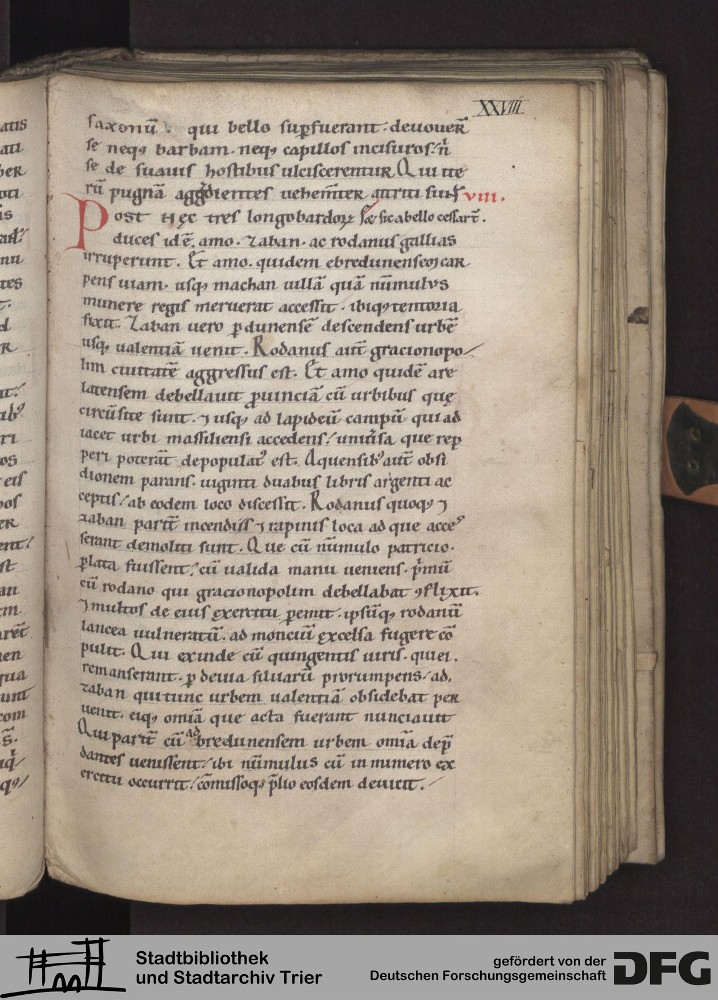 XXVIII
saxonū. qui bello sup̄fuerant. deuouer̄
se neq; barbam. neq; capillos incisuros. n̄
se de suauis hostibus ulciscerentur. Qui ite
rū pugnā aggredientes uehemt̄er attriti sunt VIII.
Post hęc tres longobardoꝝ se sic a bello cessar̄t.
duces id ē. amo. zaban. ac rodanus gallias
irruperunt. Et amo. quidem ebredunensem car
pens uiam. usq; machan uillā quā nūmulus
munere regis meruerat accessit. ibiq; tentoria
fixit. Zaban uero p dunensē descendens urbē
usq; ualentiā uenit. Rodanus aut̄ gracionopo
lim ciuitatē aggressus est. Et amo quidē are
latensem debellauit prouinciā cū urbibus que
circūsite sunt. ⁊ usq; ad lapideū campū qui ad
iacet urbi massiliensi accedens / uniūsa que rep
peri poterat̄ depopulat᷒ est. Aquensib᷒ aut̄ obsi
dionem parans. uiginti duabus libris argenti ac
ceptis / ab eodem loco discessit. Rodanus quoq; ⁊
zaban parit̄ incendiis ⁊ rapinis loca ad que acce
serant demoliti sunt. Que cū nūmulo patricio.
plata fuissent / cū ualida manu ueniens. p̄mū
cū rodano qui gracionopolim debellabat ꝯflixit.
⁊ multos de eius exercitu pemit. ipsūq; rodanū
lancea uulneratū. ad monciū excelsa fugere cō
pulit. Qui exinde cū quingentis uiris. qui ei.
remanserant. p deuia siluarū prorumpens / ad,
zaban qui tunc urbem ualentiā obsidebat per
uenit. eiq; omīa que acta fuerant nunciauit
Qui parit̄ cū ad ebredunensem urbem omīa dep̄
dantes uenissent / ibi nūmulus cū innumero ex
ercitu occurrit / cōmissoq; p̄lio eosdem deuicit.
Stadtbibliothek
und Stadtarchiv Trier
gefördert von der
Deutschen Forschungsgemeinschaft
DFG